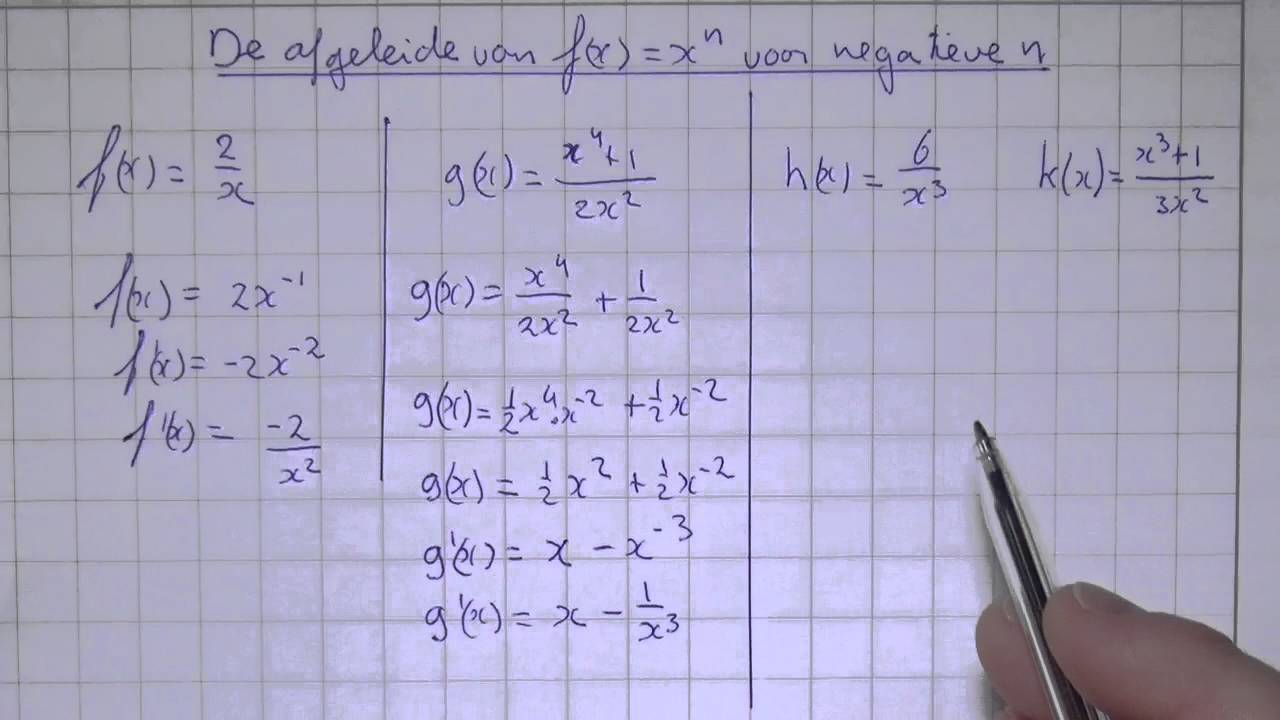 De afgeleide van f(x) = xⁿ voor negatieve n
f(x) = 2/x
f(x) = 2x⁻¹
f'(x) = -2x⁻²
f'(x) = -2/x²
g(x) = (x⁴+1)/(2x²)
g(x) = x⁴/(2x²) + 1/(2x²)
g(x) = ½x⁴·x⁻² + ½x⁻²
g(x) = ½x² + ½x⁻²
g'(x) = x - x⁻³
g'(x) = x - 1/x³
h(x) = 6/x³
k(x) = (x³+1)/(3x²)